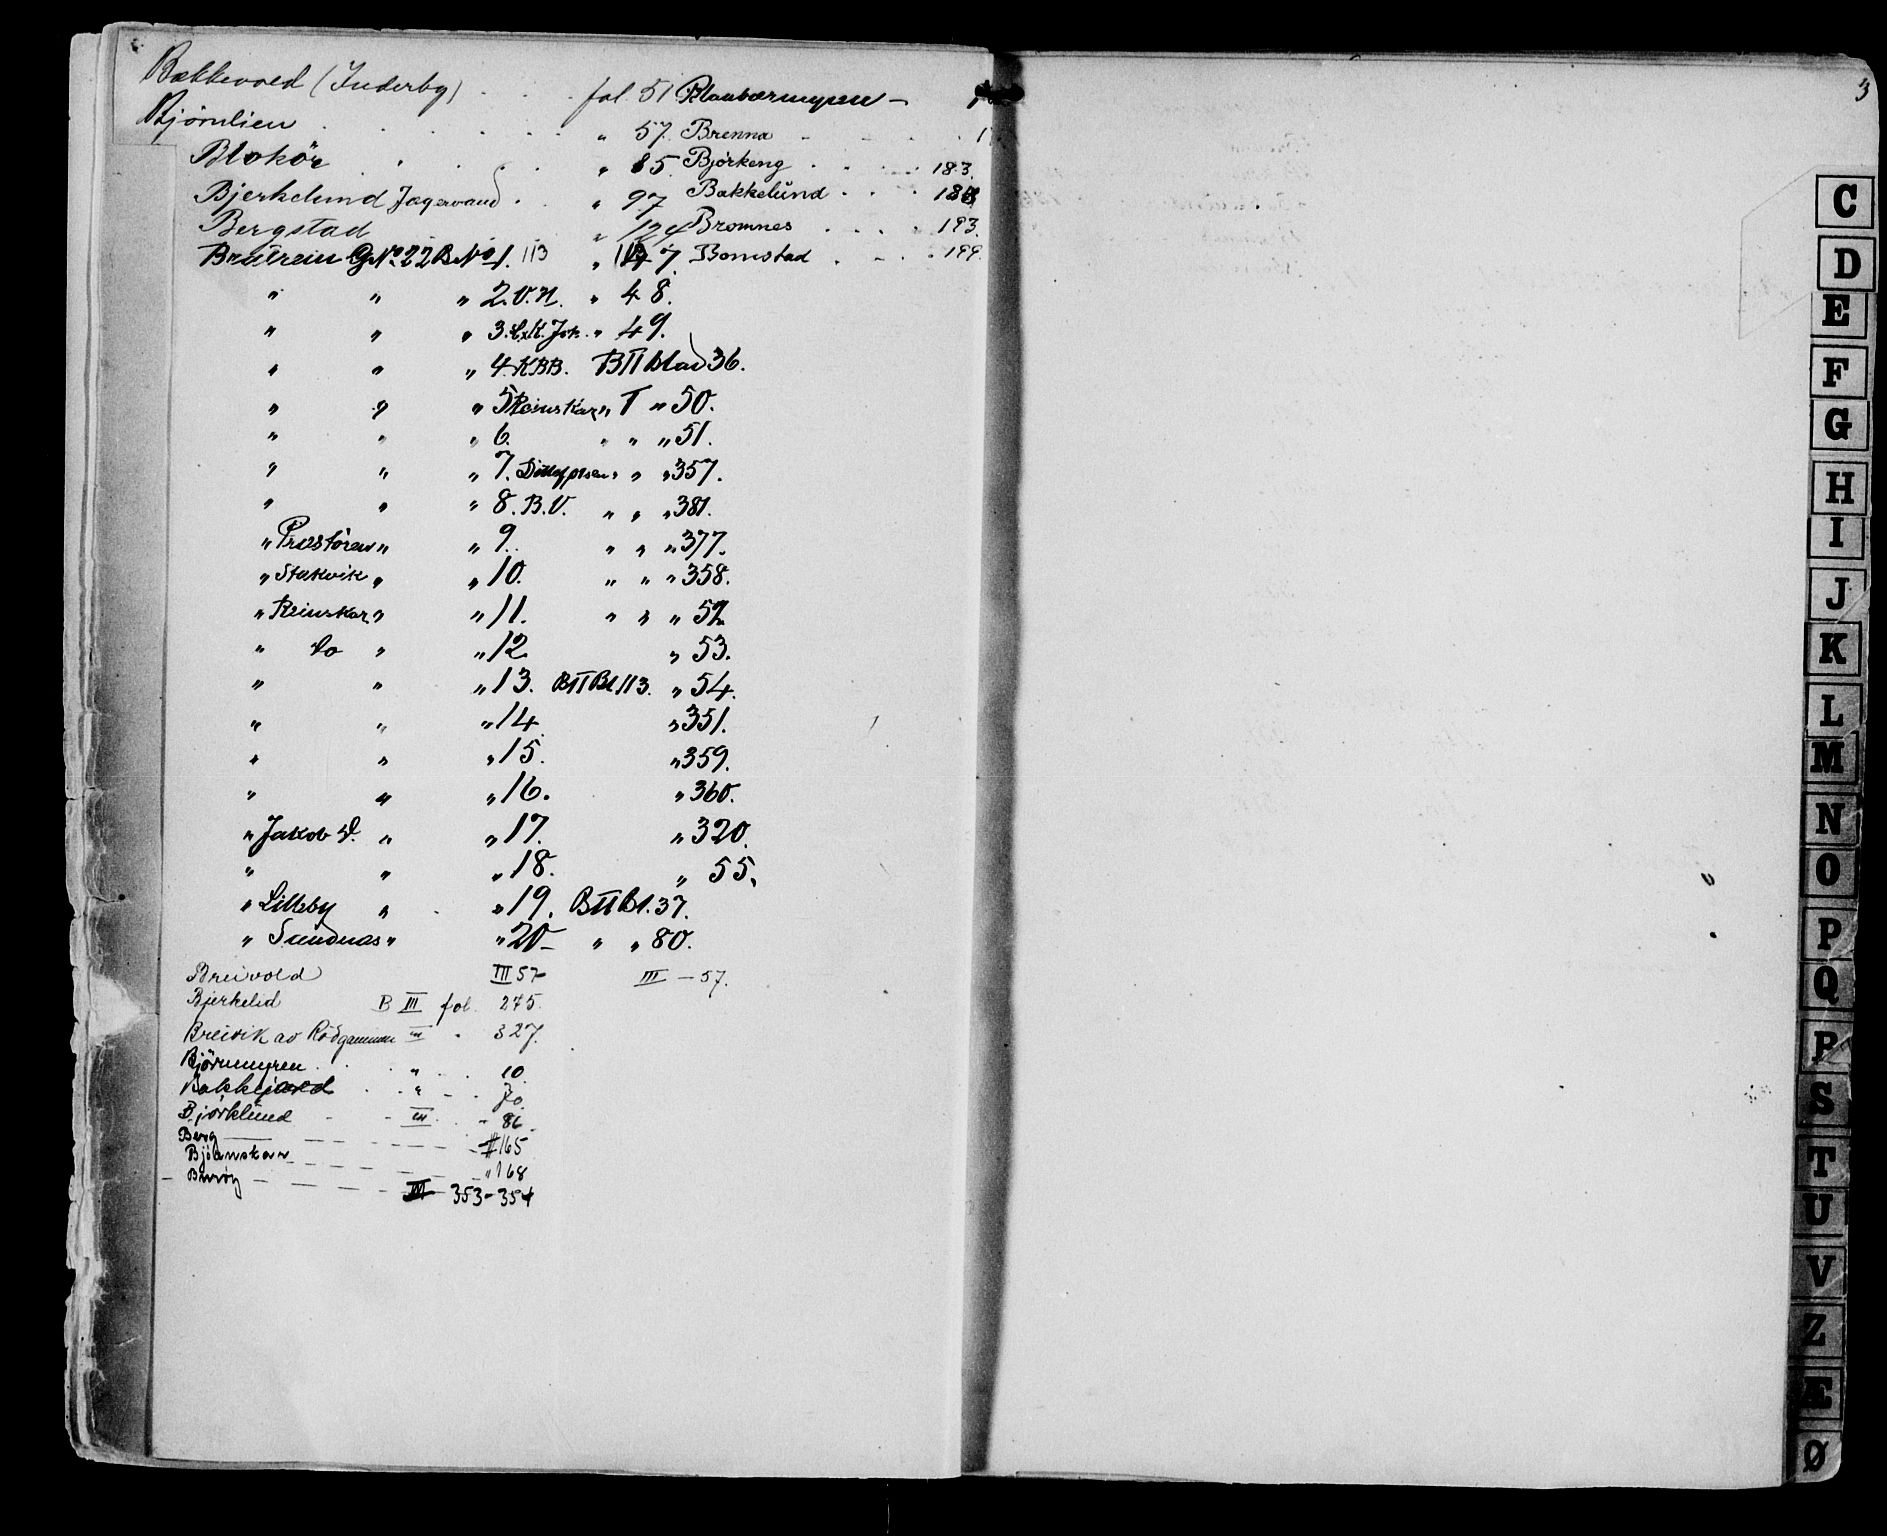 Bækkevold (Inderby) . . . fol. 51 Blaabærmyren —
Bjørnlien . . . . . . " 57. Brenna - - - 1
Blokör . . . " 85 Björkeng . . . . 183.
Bjerkelund Jægervand . " 97 Bakkelund . . . 188
Bergstad " 124 Bromnes . . . . 193.
Bratrein G.No. 22 B.No 1. 113 " 47. Bomstad . - . 199.
" " " 2. V.N. " 48.
" " " 3. Joh. " 49.
" " " 4. KBB. BII Blad 36.
" " " 5 Reinskar " I " 50.
" " " 6. " " " 51.
" " " 7. " " 357.
" " " 8. B.V. " " " 381.
" Præstøren " " 9. " " " 377.
" Stakvik " " 10. " " " 358.
" Reinskar " " 11. " " " 52
" Do " " 12 " 53.
" " " 13. BII Bl 113. " 54.
" " " 14 " 351.
" " " 15. " 359.
" " " 16. " 360.
" Jakob V. " " 17. " 320.
" " " 18. " 55.
" Lilleby " . " 19. BII Bl. 37.
" Sundnæs " " 20 - " " 80.
Breivold III 57 III - 57.
Bjerkelid B III fol. 275.
Breivik av Rödgammen III " 327.
Björnmyren . . . " . . 10.
Bakkejord . . " - - 70.
Bjørklund - - III . - 86.
Berg — — — — — - # 165
Bjørnskar — — — — " 168
— — — — III 353-354
3
C
D
E
F
G
H
I
J
K
L
M
N
O
P
Q
R
S
T
U
V
Z
Æ
Ø